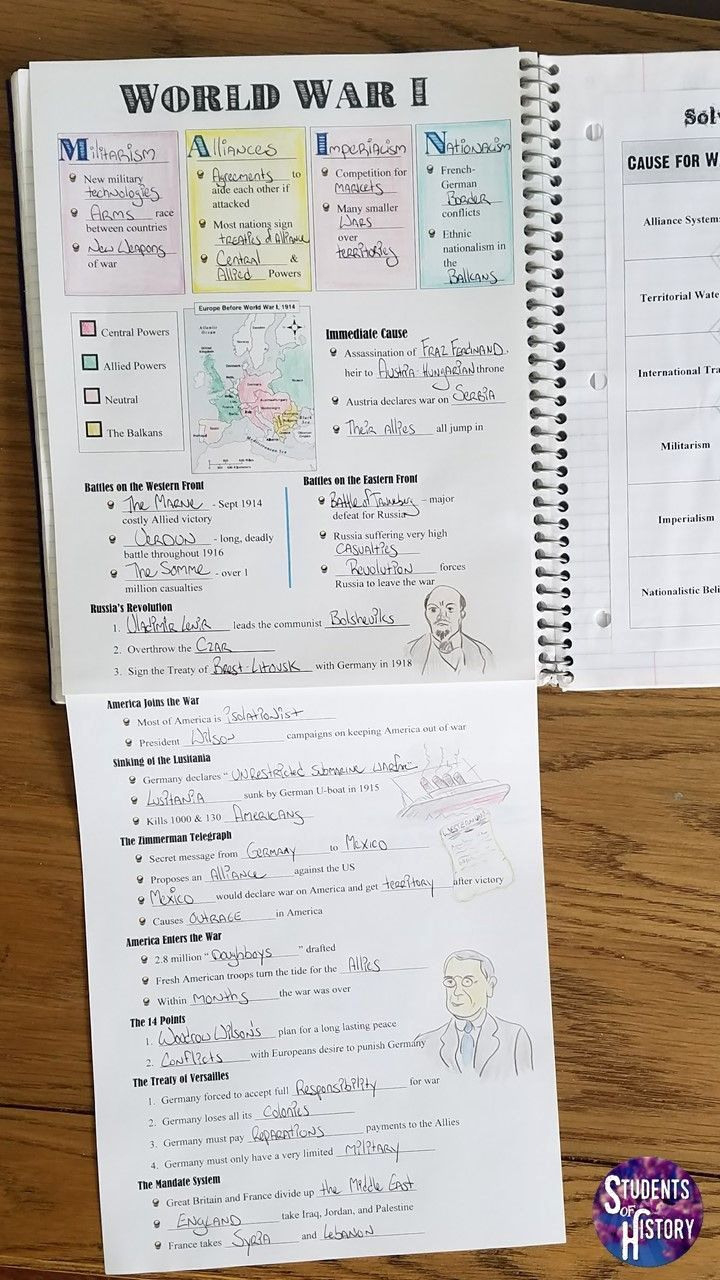 WORLD WAR I
Militarism
New military
technologies
Arms race
between countries
New Weapons
of war
Alliances
Agreements to
aide each other if
attacked
Most nations sign
treaties of Alliance
Central &
Allied Powers
Imperialism
Competition for
markets
Many smaller
Wars
over
territories
Nationalism
French-
German
Border
conflicts
Ethnic
nationalism in
the
Balkans
Central Powers
Allied Powers
Neutral
The Balkans
Europe Before World War I, 1914
Immediate Cause
Assassination of Fraz Ferdinand,
heir to Austria-Hungarian throne
Austria declares war on Serbia
Their Allies all jump in
Battles on the Western Front
The Marne - Sept 1914
costly Allied victory
Verdun - long, deadly
battle throughout 1916
The Somme - over 1
million casualties
Battles on the Eastern Front
Battle of – major
defeat for Russia
Russia suffering very high
casualties
Revolution forces
Russia to leave the war
Russia's Revolution
1. Vladimir Lenin leads the communist Bolsheviks
2. Overthrow the Czar
3. Sign the Treaty of Brest-Litovsk with Germany in 1918
America Joins the War
Most of America is isolationist
President Wilson campaigns on keeping America out of war
Sinking of the Lusitania
Germany declares "unrestricted submarine warfare"
Lusitania sunk by German U-boat in 1915
Kills 1000 & 130 Americans
The Zimmerman Telegraph
Secret message from Germany to Mexico
Proposes an Alliance against the US
Mexico would declare war on America and get territory after victory
Causes outrage in America
America Enters the War
2.8 million "Doughboys" drafted
Fresh American troops turn the tide for the Allies
Within months the war was over
The 14 Points
1. Woodrow Wilsons plan for a long lasting peace
2. Conflicts with Europeans desire to punish Germany
The Treaty of Versailles
1. Germany forced to accept full Responsibility for war
2. Germany loses all its colonies
3. Germany must pay Reparations payments to the Allies
4. Germany must only have a very limited military
The Mandate System
Great Britain and France divide up the Middle East
England take Iraq, Jordan, and Palestine
France takes Syria and Lebanon
CAUSE FOR W
Alliance System
Territorial Wate
International Tra
Militarism
Imperialism
Nationalistic Beli
STUDENTS
OF
HISTORY